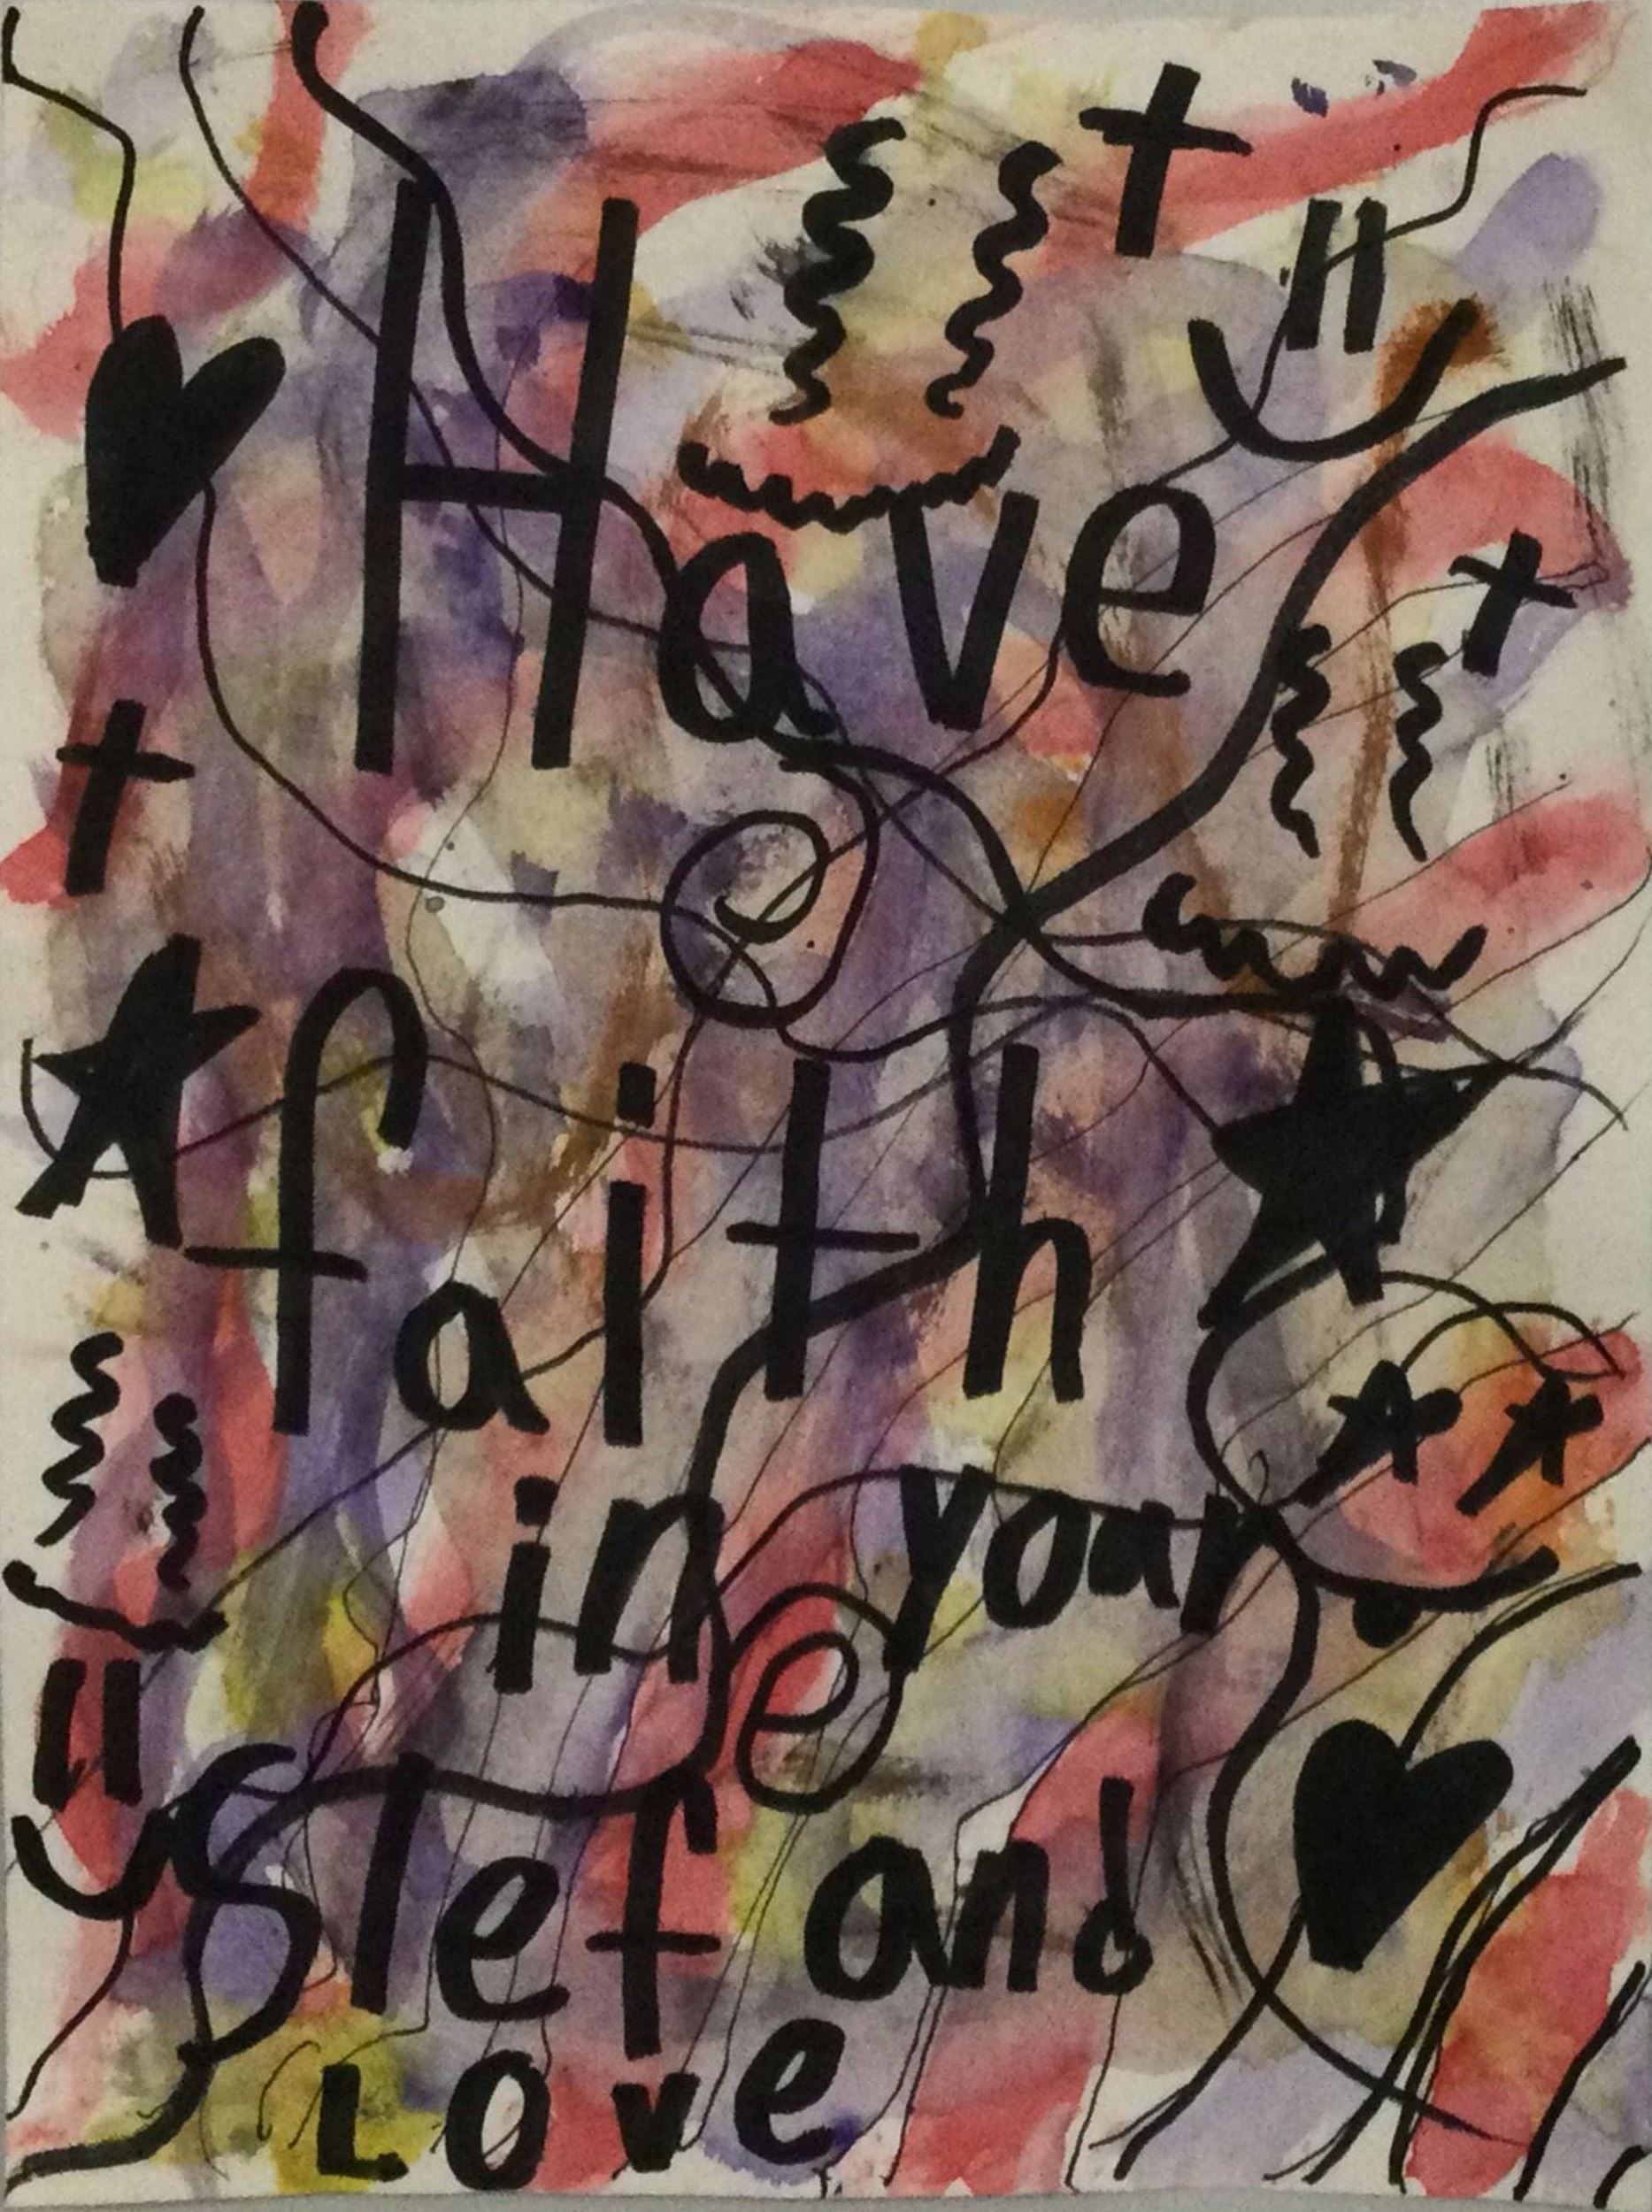 Have
faith
in your
slef and
Love